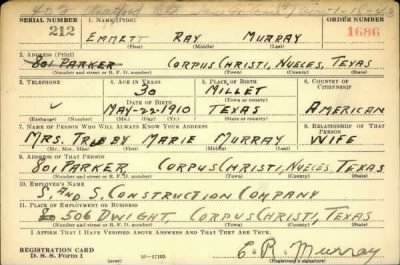 SERIAL NUMBER 1. NAME (Print) ORDER NUMBER
212 EMMETT RAY MURRAY 1686
(First) (Middle) (Last)
2. ADDRESS (Print)
801 PARKER CORPUS CHRISTI, NUECES, TEXAS
(Number and street or R. F. D. number) (Town) (County) (State)
3. TELEPHONE 4. AGE IN YEARS 5. PLACE OF BIRTH 6. COUNTRY OF CITIZENSHIP
30 MILLET
DATE OF BIRTH (Town or county)
MAY-22-1910 TEXAS AMERICAN
(Exchange) (Number) (Mo.) (Day) (Yr.) (State or country)
7. NAME OF PERSON WHO WILL ALWAYS KNOW YOUR ADDRESS 8. RELATIONSHIP OF THAT PERSON
MRS. TRUBBY MARIE MURRAY WIFE
(Mr., Mrs., Miss) (First) (Middle) (Last)
9. ADDRESS OF THAT PERSON
801 PARKER CORPUS CHRISTI, NUECES, TEXAS
(Number and street or R. F. D. number) (Town) (County) (State)
10. EMPLOYER'S NAME
S. AND S. CONSTRUCTION COMPANY
11. PLACE OF EMPLOYMENT OR BUSINESS
506 DWIGHT, CORPUS CHRISTI, TEXAS
(Number and street or R. F. D. number) (Town) (County) (State)
I AFFIRM THAT I HAVE VERIFIED ABOVE ANSWERS AND THAT THEY ARE TRUE.
REGISTRATION CARD
D. S. S. Form 1 E. R. Murray
(Registrant's signature)